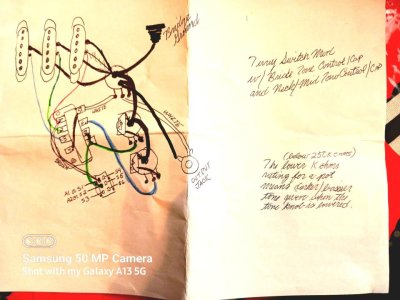 Bridge
Ground
OUTPUT
JACK
S1
S2
S3
7 way Switch Mod
w/ Bridge Tone Control/Cap
and Neck/Mid Tone Control/Cap
(below 250K ohms)
The lower K ohms
rating for a pot
means darker/bassier
tone even when the
tone knob is lowered.
Samsung 50 MP Camera
Shot with my Galaxy A13 5G